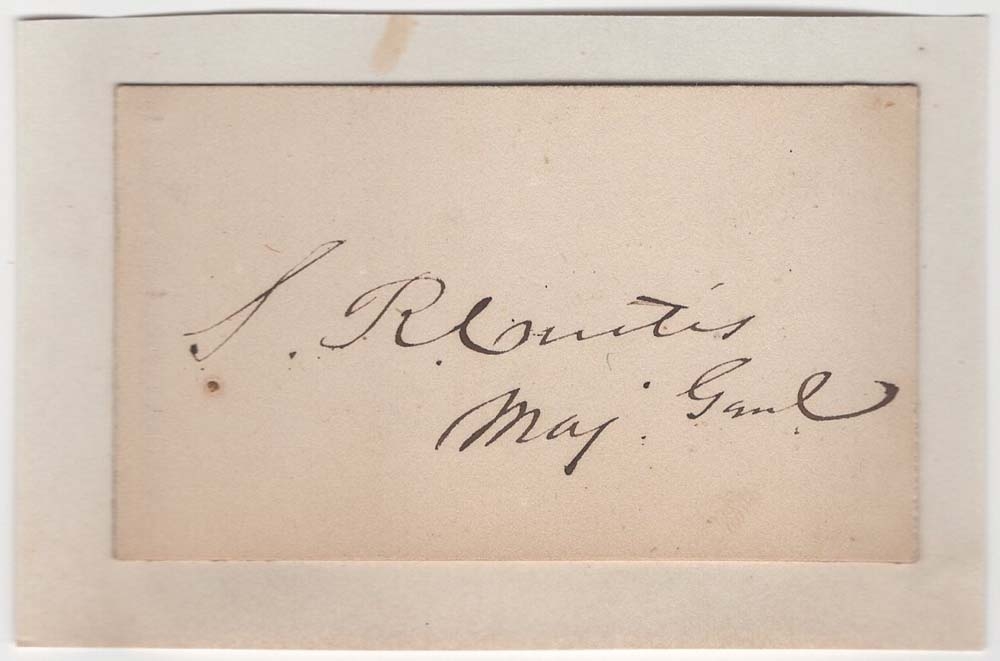 S. R. Curtis
Maj. Genl